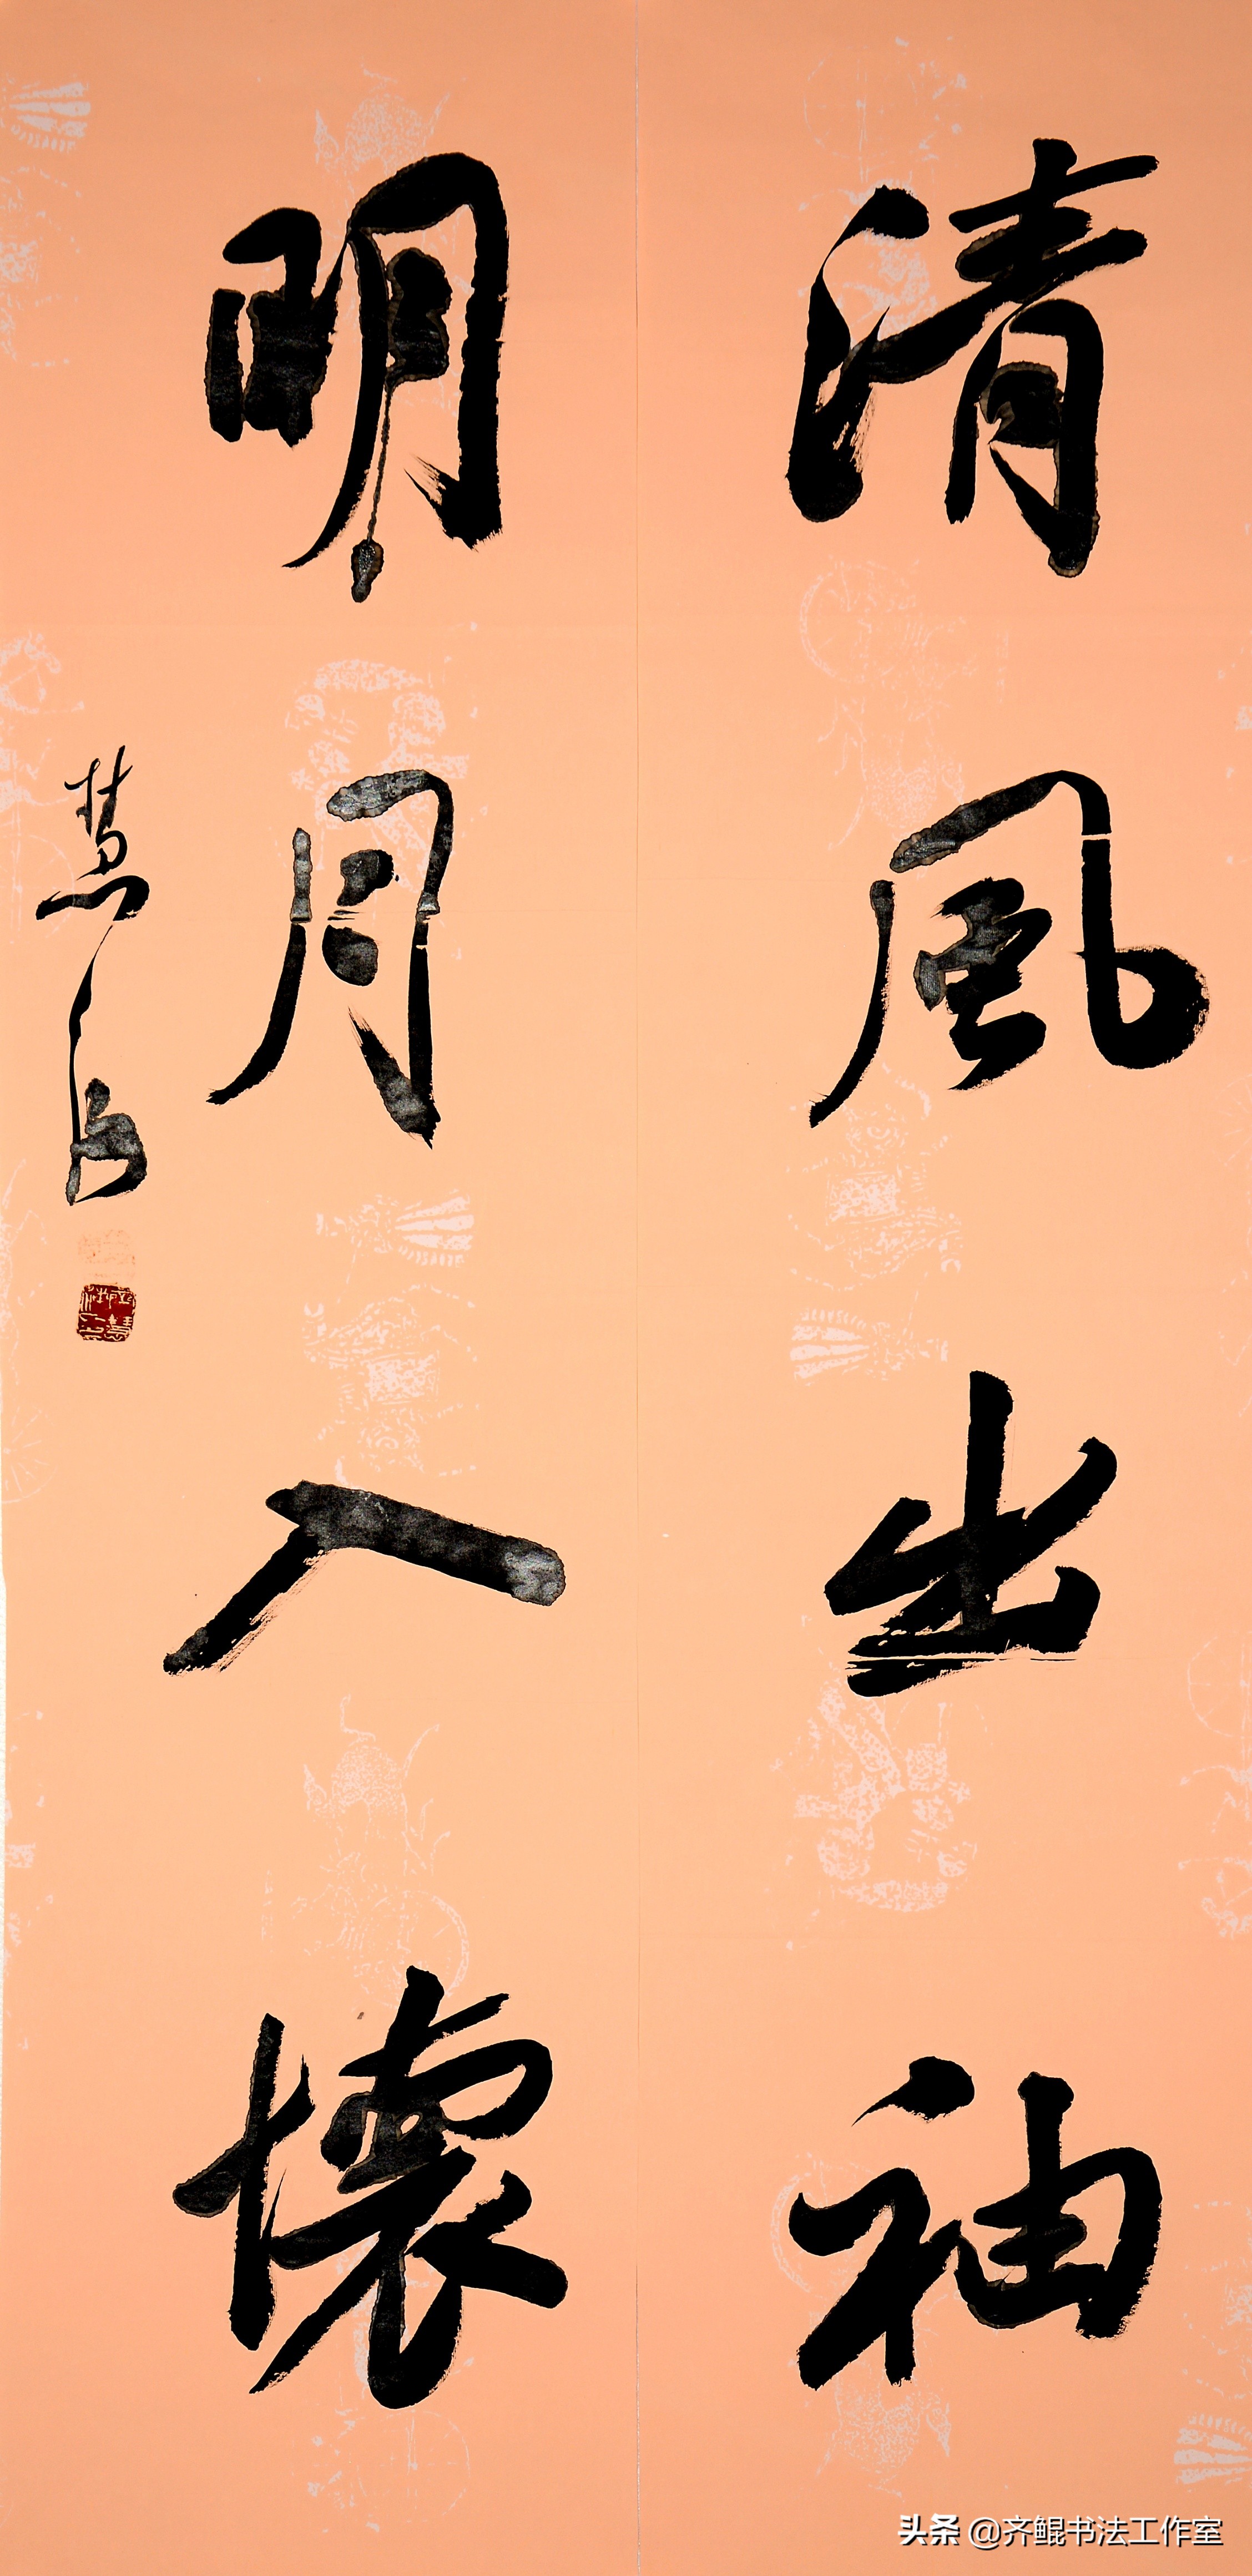 清風出袖
明月入懷
头条 @齐鲲书法工作室